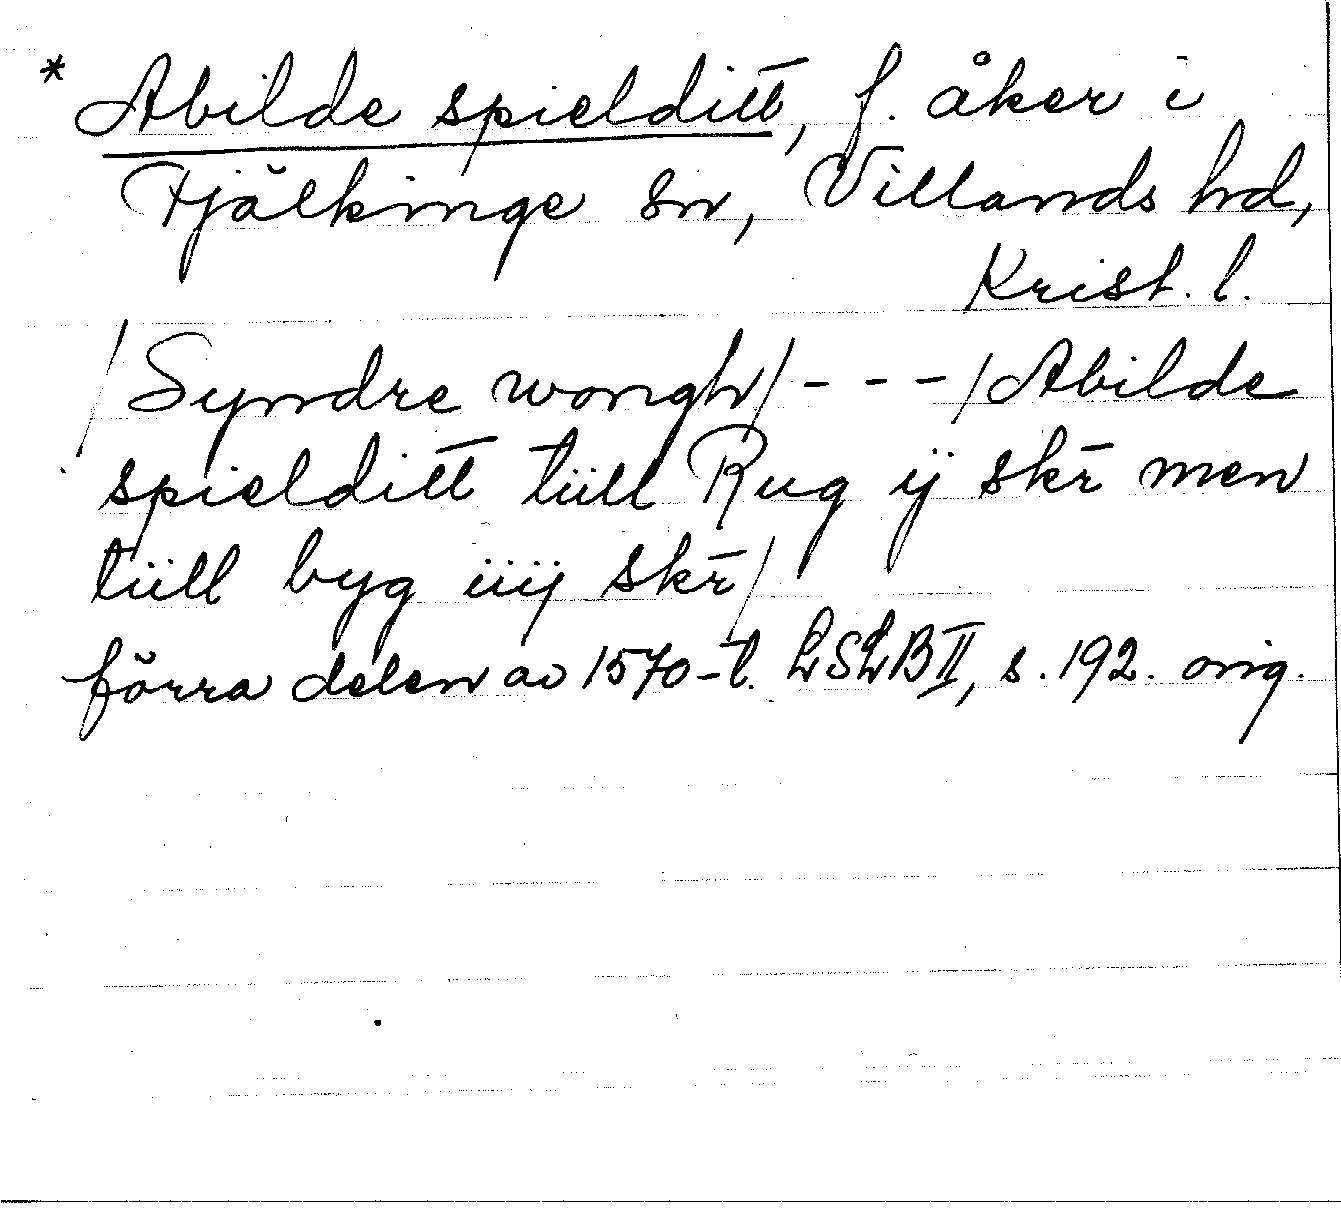 * Abilde spielditt, f. åker i
Fjälkinge sn, Villands hd,
Krist. l.
/Syndre wongh/ - - - /Abilde
spielditt tiill Rug ij skr̄ men
tiill byg iiij skr̄/
förra delen av 1570-t. LSLB II, s. 192. orig.